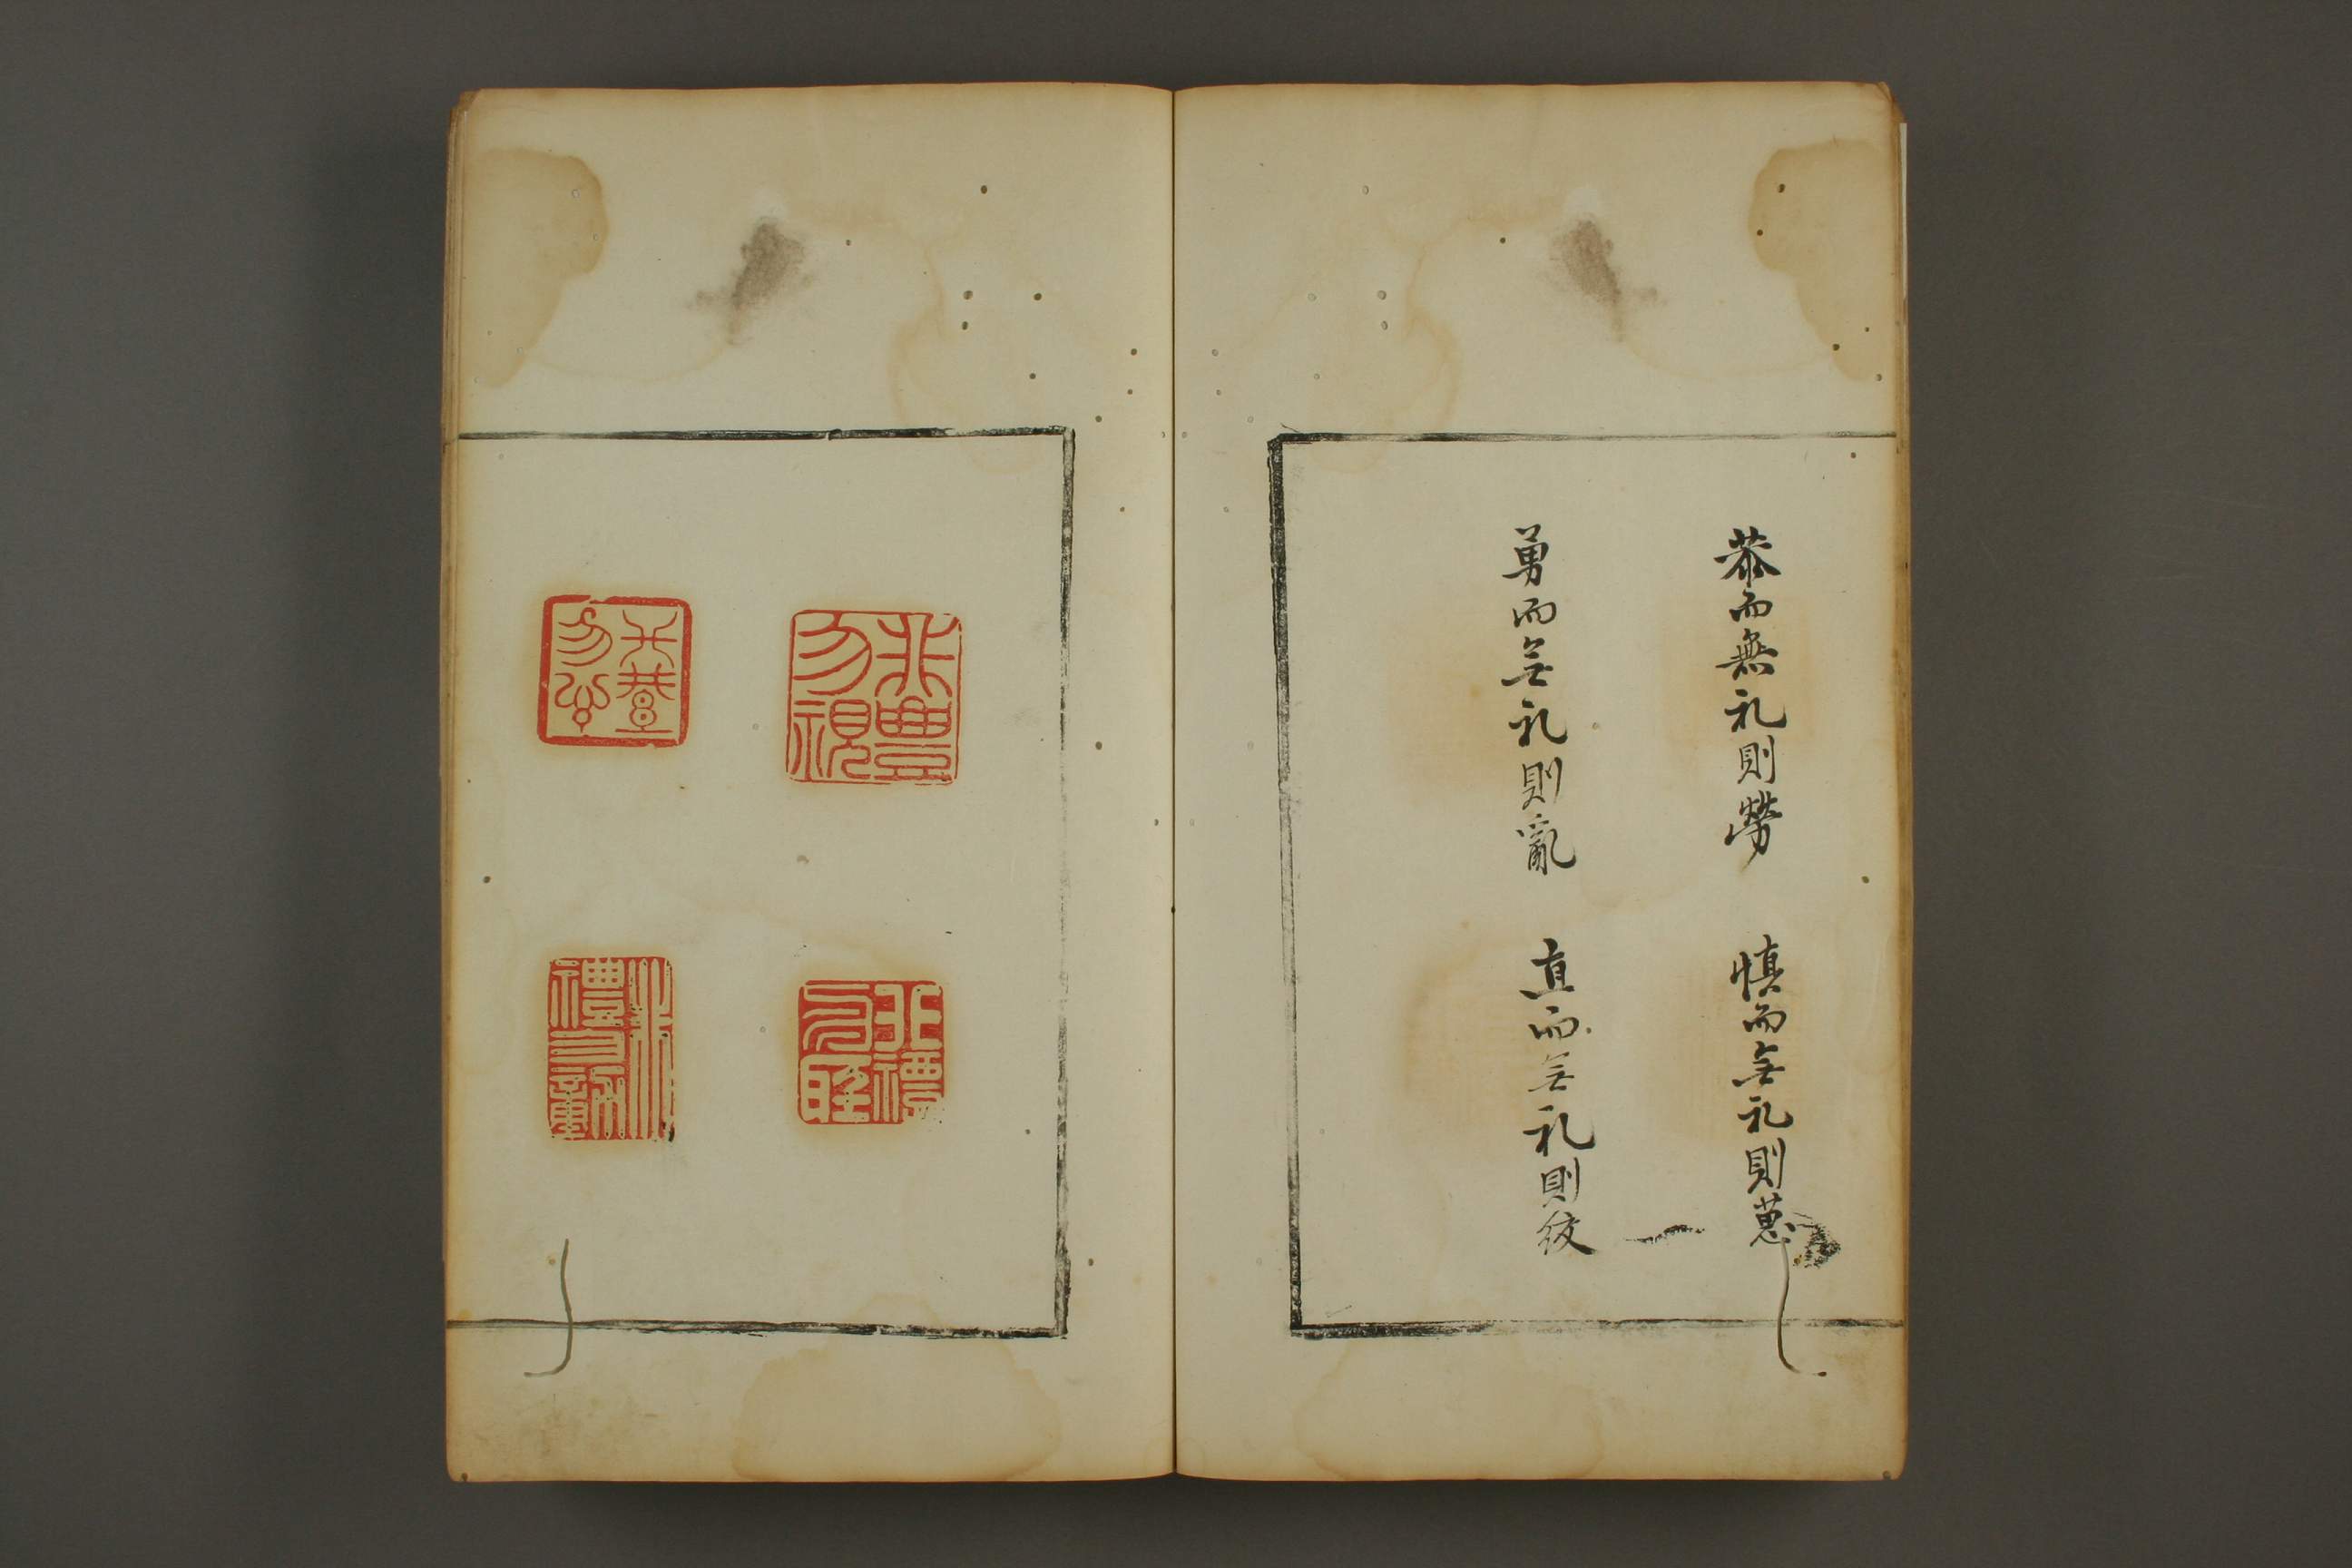 恭而無礼則勞
慎而無礼則葸
勇而無礼則亂
直而無礼則絞
非豊勿視
非禮勿聽
非禮勿言
非禮勿動